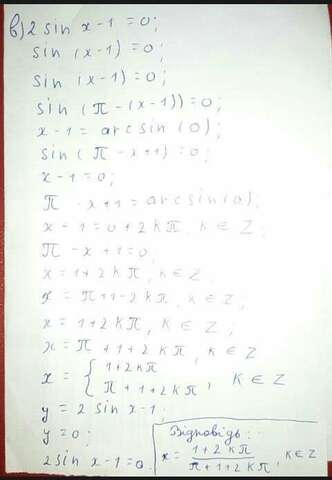 в) 2 sin x - 1 = 0;
sin (x - 1) = 0;
sin (x - 1) = 0;
sin (π - (x - 1)) = 0;
x - 1 = arcsin (0);
sin (π - x + 1) = 0;
x - 1 = 0;
π - x + 1 = arcsin (0);
x - 1 = 0 + 2kπ, k ∈ Z;
π - x + 1 = 0;
x = 1 + 2kπ, k ∈ Z
x = π + 1 - 2kπ, k ∈ Z;
x = 1 + 2kπ, k ∈ Z;
x = π + 1 + 2kπ, k ∈ Z
x = { 1 + 2kπ
π + 1 + 2kπ, k ∈ Z
y = 2 sin x - 1;
y = 0;
2 sin x - 1 = 0.
Відповідь:
x = 1 + 2kπ / π + 1 + 2kπ, k ∈ Z